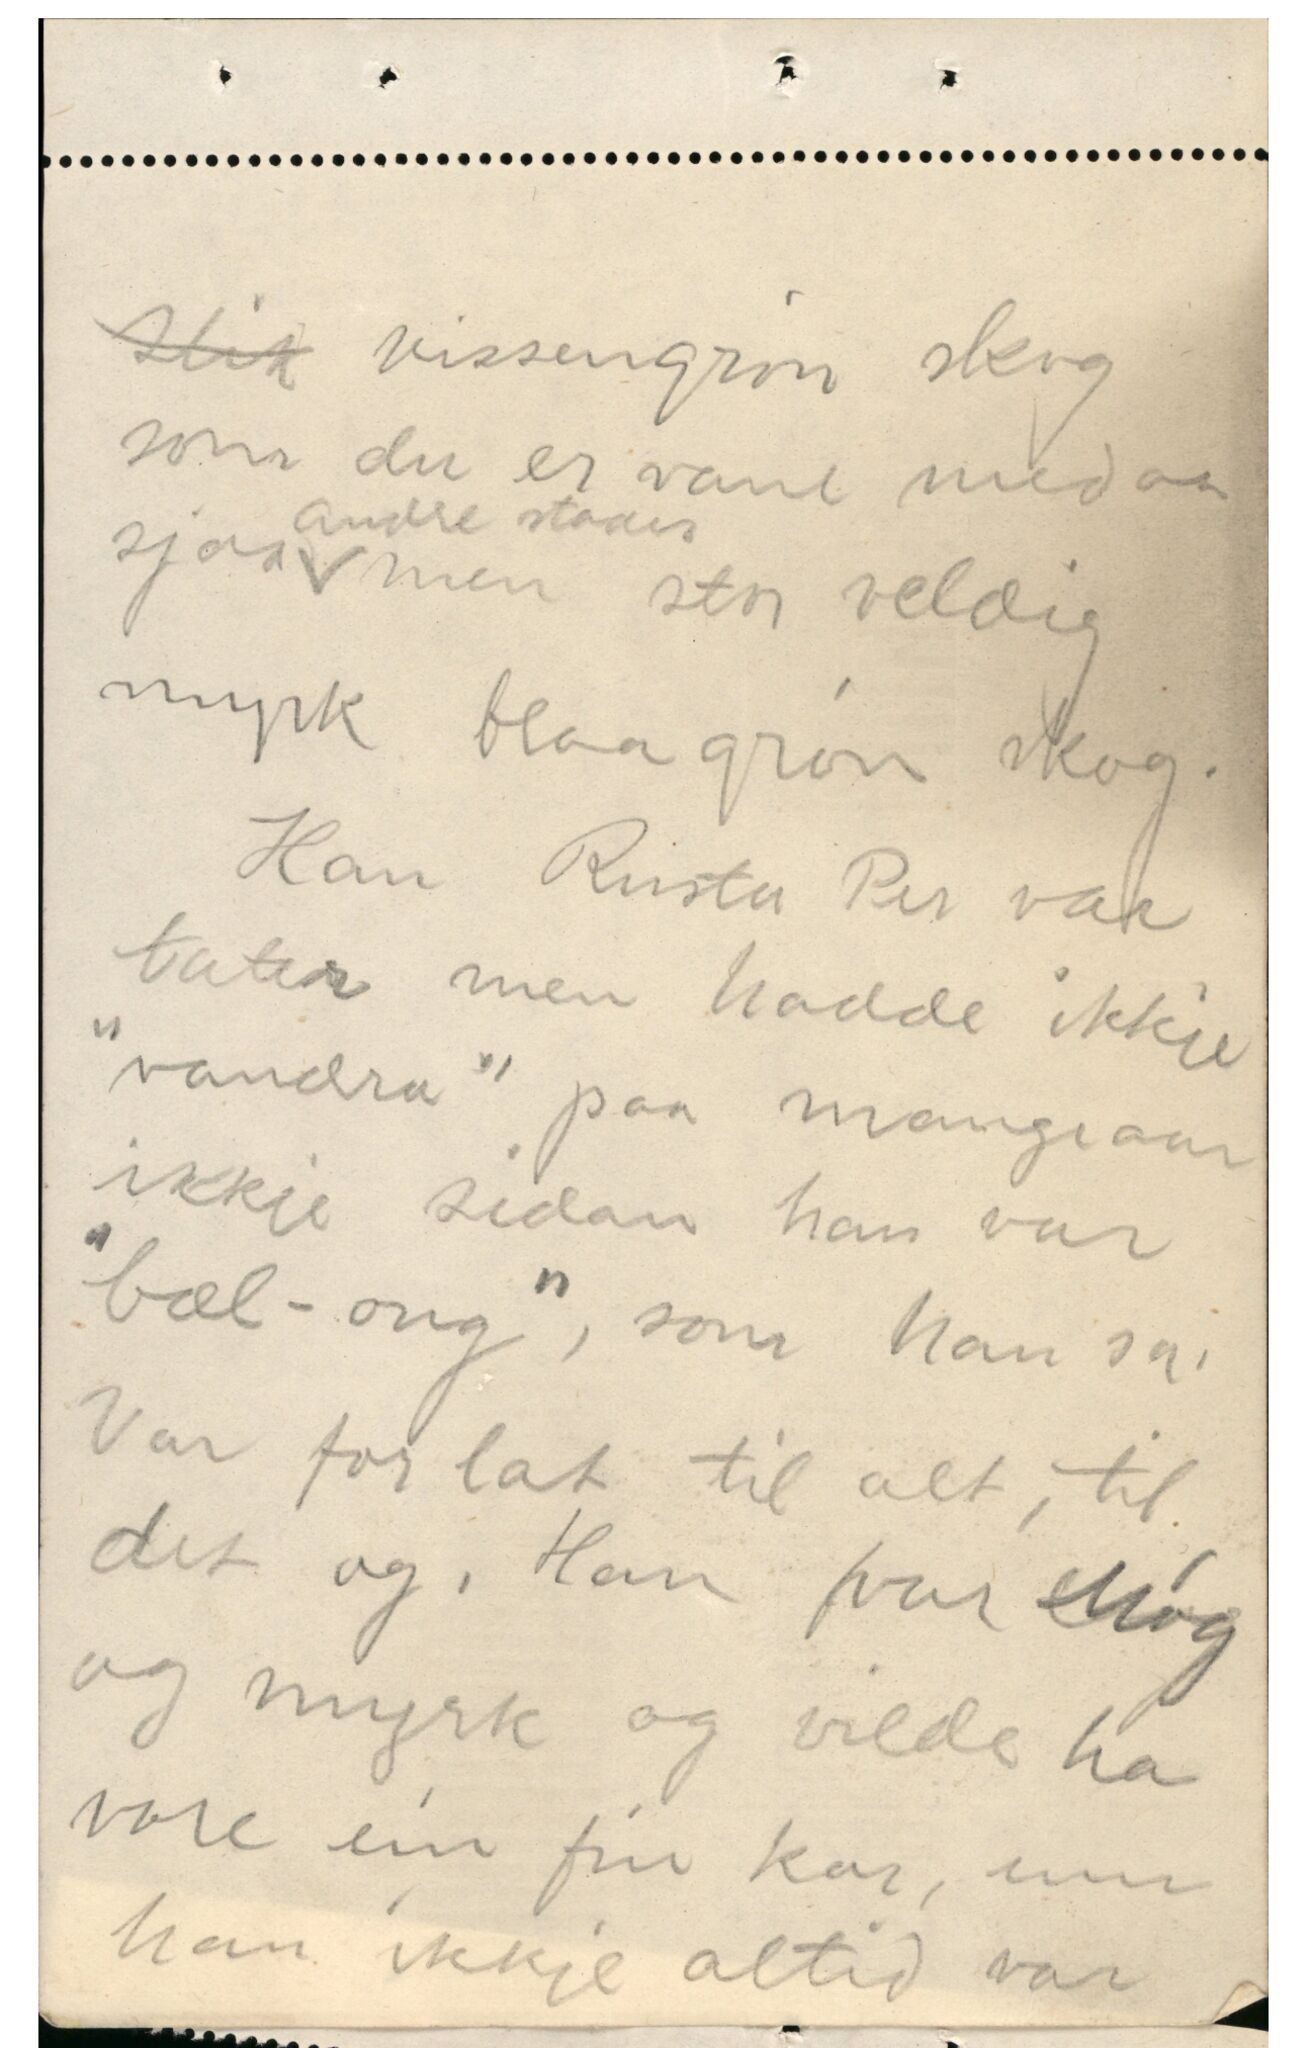 slik vissengrón skog
som du er vant med aa
sjaa andre stader men stor veldig
myrk blaagrón skog.
Han Rusta Per var
tater men hadde ikkje
"vandra" paa mange aar
ikkje sidan han var
"bæl-ong", som han sa.
Var for lat til alt, til
det og. Han var
og myrk og vilde ha
vore ein fin kar, um
han ikkje altid var